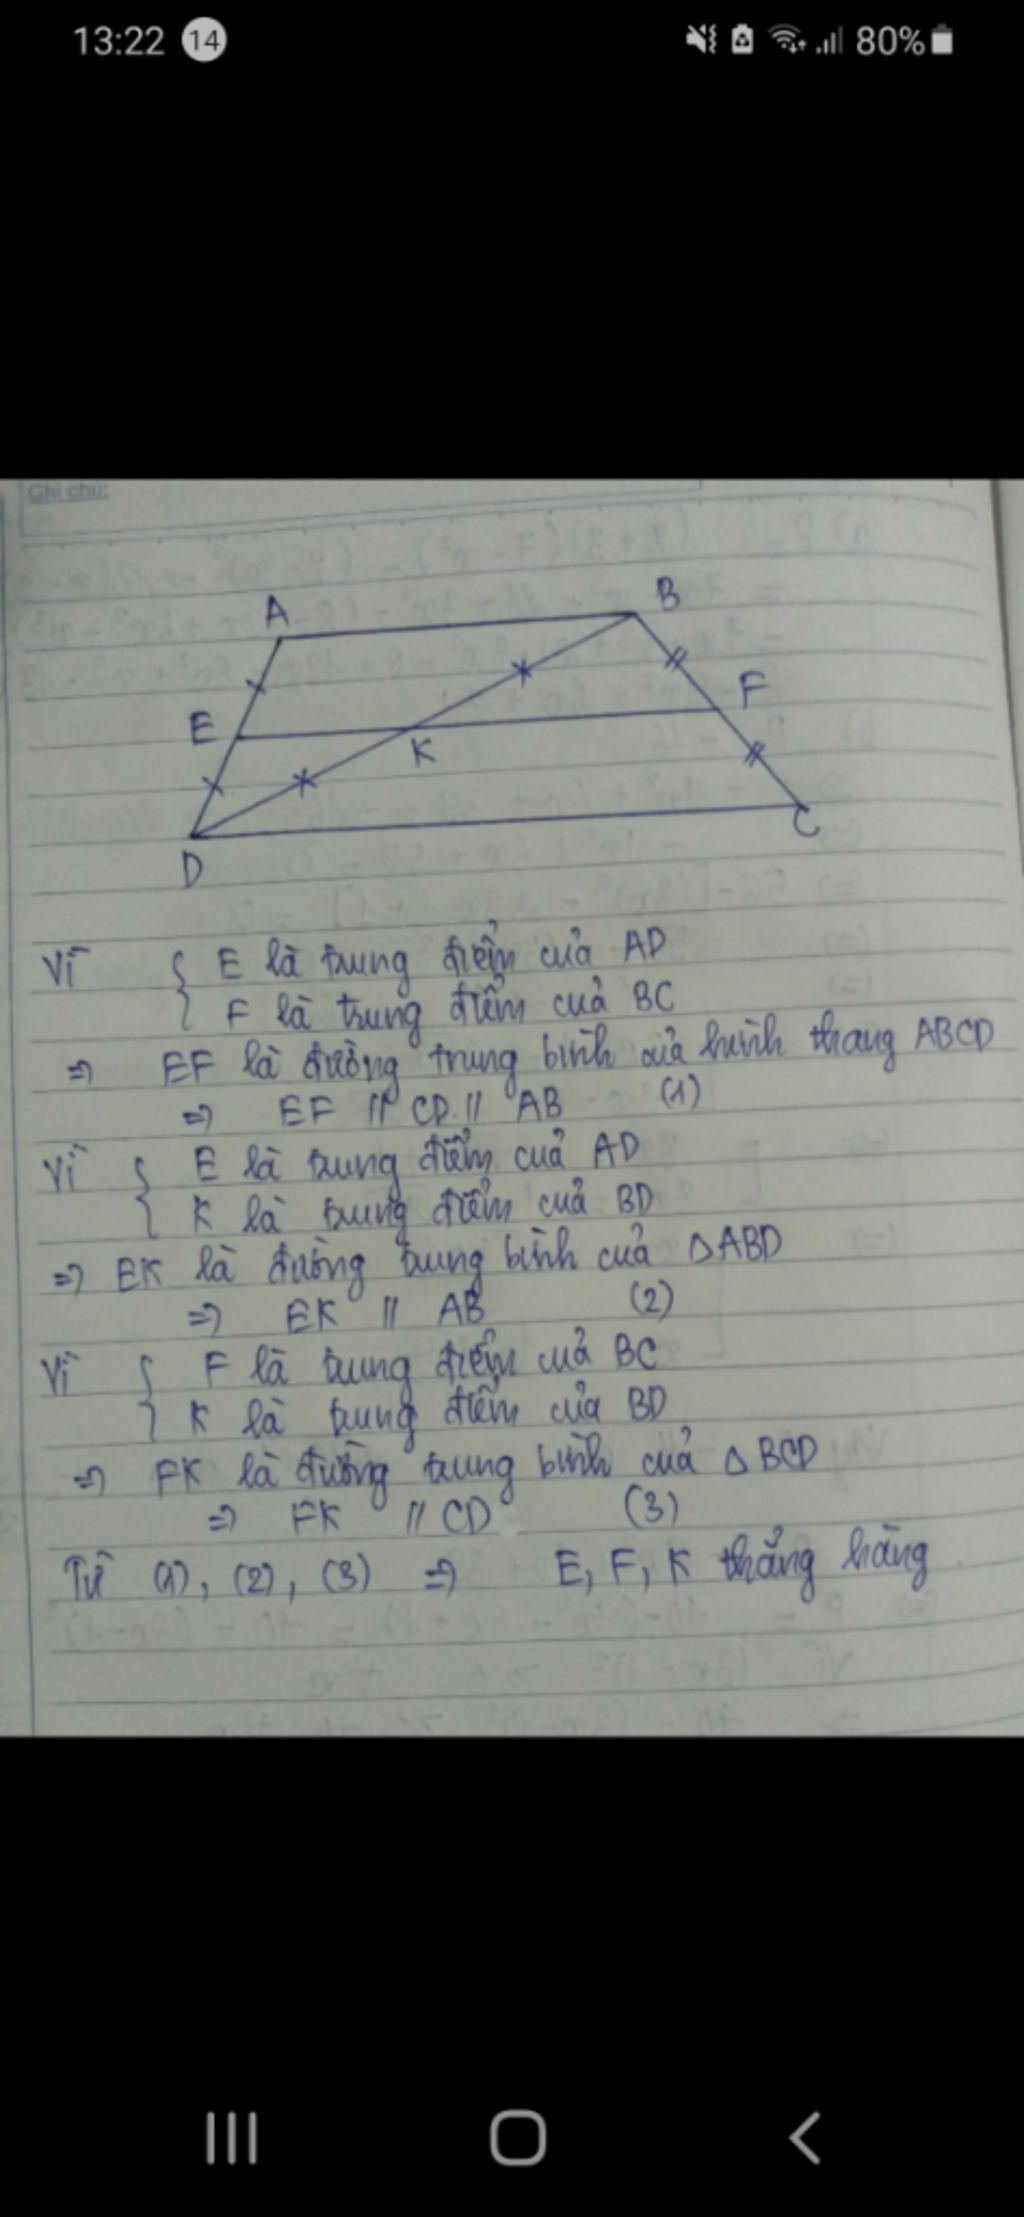 13:22 14 80%
Ghi chú:
A B
E F
K
D C
Vì { E là trung điểm của AD
F là trung điểm của BC
=> EF là đường trung bình của hình thang ABCD
=> EF // CD // AB (1)
Vì { E là trung điểm của AD
K là trung điểm của BD
=> EK là đường trung bình của ΔABD
=> EK // AB (2)
Vì { F là trung điểm của BC
K là trung điểm của BD
=> FK là đường trung bình của ΔBCD
=> FK // CD (3)
Từ (1), (2), (3) => E, F, K thẳng hàng